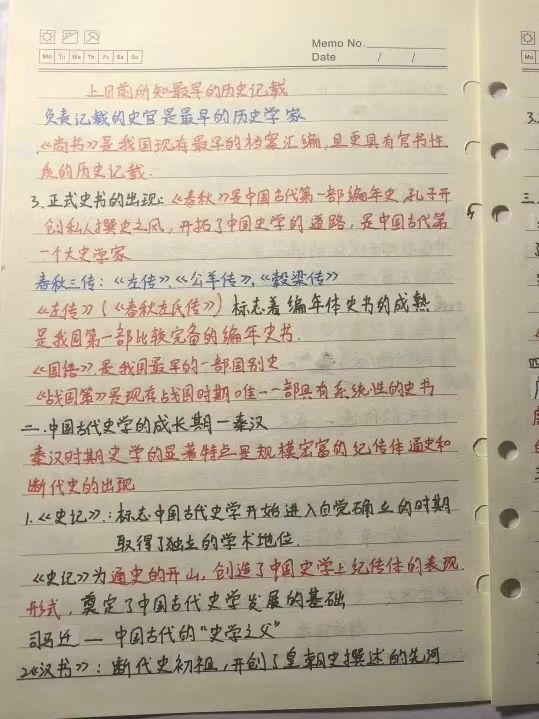 Memo No.
Mo Tu We Th Fr Sa Su
Date / /
上目前所知最早的历史记载
负责记载的史官是最早的历史学家
《尚书》是我国现存最早的档案汇编,且更具有官书性
质的历史记载.
3.正式史书的出现:《春秋》是中国古代第一部编年史,孔子开
创私人撰史之风,开拓了中国史学的道路,是中国古代第
一个大史学家
春秋三传:《左传》《公羊传》、《穀梁传》
《左传》(《春秋左氏传》)标志着编年体史书的成熟
是我国第一部比较完备的编年史书.
《国语》是我国最早的一部国别史
《战国策》是现存战国时期唯一一部具有系统性的史书
二.中国古代史学的成长期—秦汉
秦汉时期史学的显著特点是规模宏富的纪传体通史和
断代史的出现
1.《史记》:标志中国古代史学开始进入自觉确立的时期
取得了独立的学术地位.
《史记》为通史的开山,创造了中国史学上纪传体的表现
形式,奠定了中国古代史学发展的基础
司马迁—中国古代的“史学之父”
2《汉书》:断代史初祖,开创了皇朝史撰述的先河
3.
三.
四